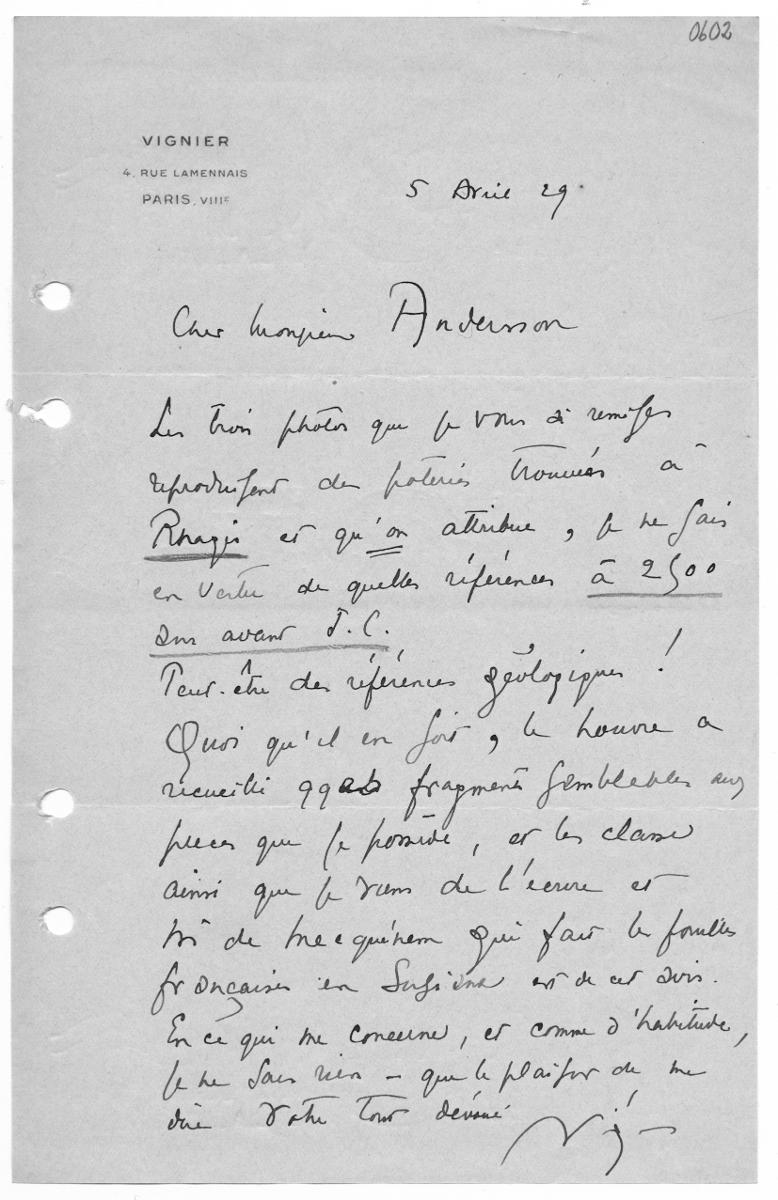 0602
VIGNIER
4, RUE LAMENNAIS
PARIS, VIIIᴱ
5 Avril 29.
Cher Monsieur Andersson
Les trois photos que je vous ai remises
reproduisent des poteries trouvées à
Rhagès et qu'on attribue, je ne sais
en vertu de quelles références à 2500
ans avant J.C.
Peut-être des références géologiques !
Quoi qu'il en soit, le Louvre a
recueilli qqes fragments semblables aux
pièces que je possède, et les classe
ainsi que je viens de l'écrire et
Mr de Mecquénem qui fait les fouilles
françaises en Susiane est de cet avis.
En ce qui me concerne, et comme d'habitude,
je ne sais rien – que le plaisir de me
dire votre tout dévoué